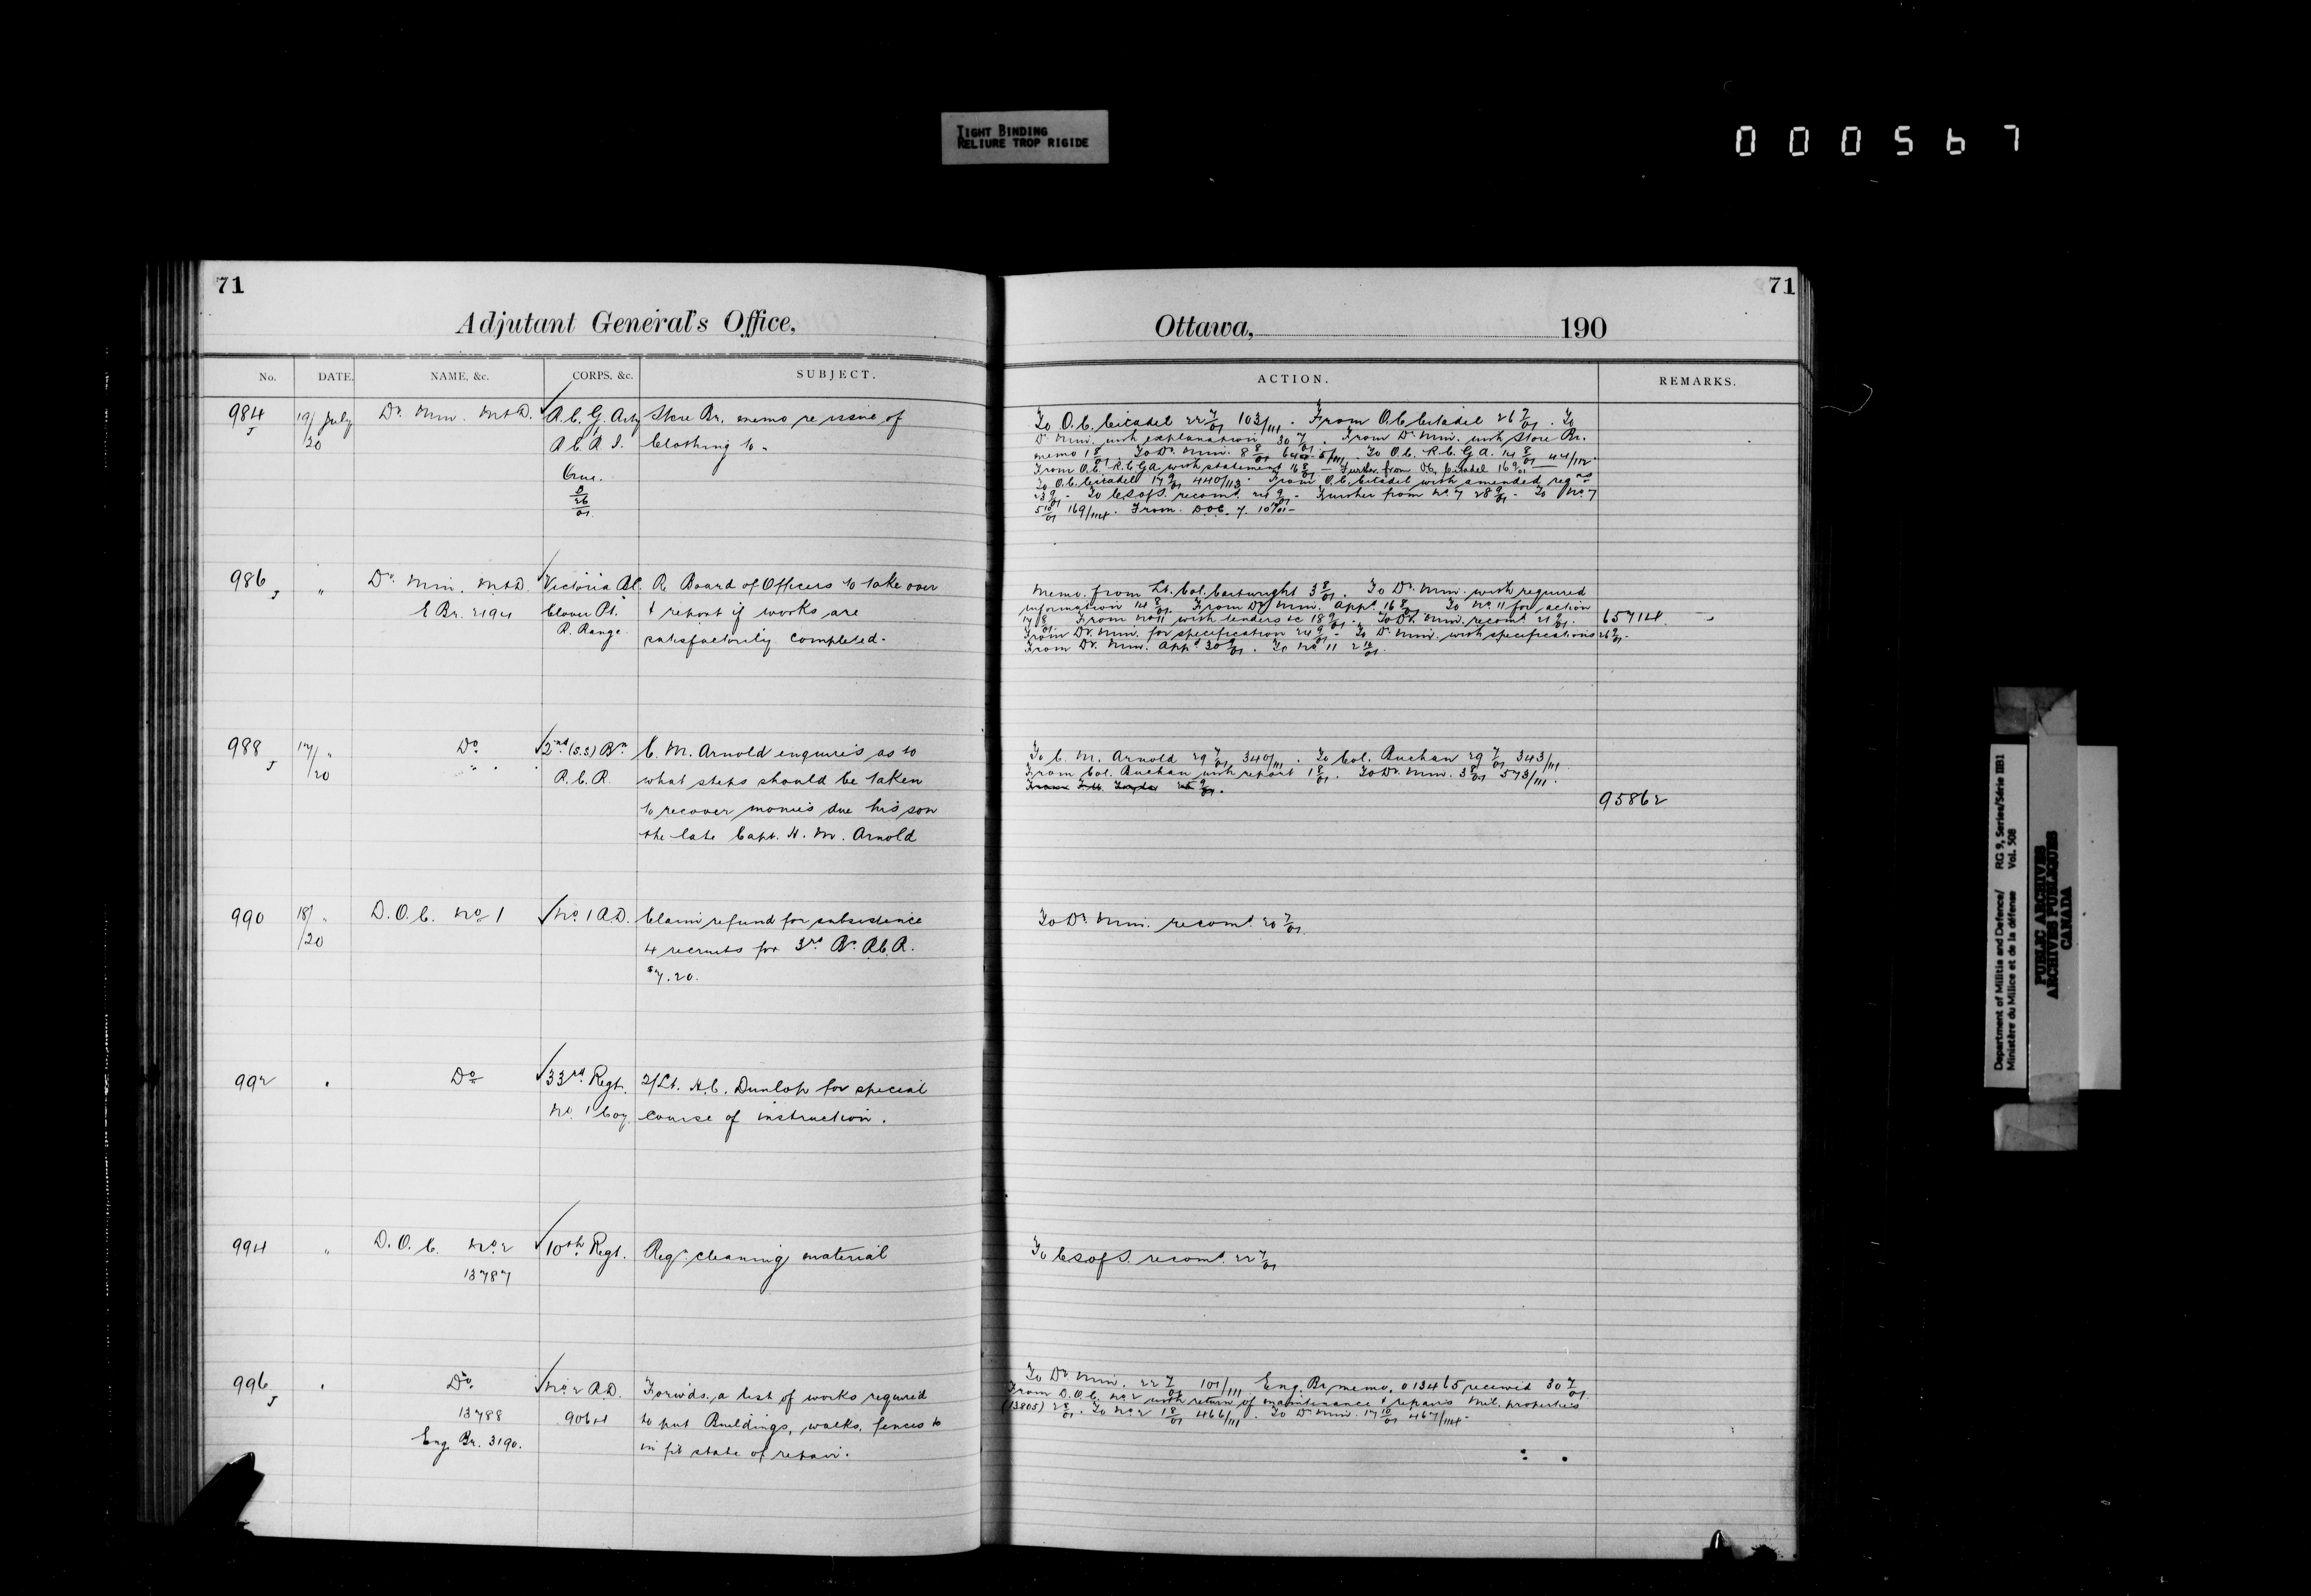 TIGHT BINDING
RELIURE TROP RIGIDE
0 0 0 5 6 7
71
Adjutant General's Office,
No. DATE. NAME, &c. CORPS, &c. SUBJECT.
984 J 19/20 July Dr. Min. M&D. R.C.G. Arty Store Br. memo re issue of
R.C.R.I. Clothing to.
26
01.
986 J " Dr. Min. M&D. Victoria Bl. Re Board of Officers to take over
E Br. 2194 Clover Pt. & report if works are
R. Range. satisfactorily completed.
988 J 17/20 " Do 2nd (S.S) Bn. C. M. Arnold enquires as to
R.C.R. what steps should be taken
to recover monies due his son
the late Capt. H. M. Arnold
990 18/20 " D.O.C. No 1 No. 1 A.D. Claim refund for subsistence
4 recruits for 3rd Bn. R.C.R.
$7.20.
992 " Do 33rd Regt. 2/Lt. H.C. Dunlop for special
No. 1 Coy course of instruction.
994 " D.O.C. No 2 10th Regt. Reqn. cleaning material
13787
996 J " Do. No. 2 A.D. Forwds. a list of works required
13788 9064 to put Buildings, walks, fences to
Eng. Br. 3190. in fit state of repair.
71
Ottawa, 190
ACTION. REMARKS.
To O.C. Citadel 22 7/01 103/111. From O.C. Citadel 26 7/01. To
Dr. Min. with explanation 30 7/01. From Dr. Min. with Store Br.
memo 1 8/01. To Dr. Min. 8 8/01 To O.C. R.C.G.A. 14 8/01 44/112.
From O.C. R.C.G.A with statement 16 8/01 — Further from O.C. Citadel 16 9/01
To O.C. Citadel 17 9/01 440/113. From O.C. Citadel with amended reqns
23 9/01. To C.S. of S. recomd. 24 9/01. Further from No. 7 28 9/01. To No. 7
5 10/01 169/114. From D.O.C. 7. 10 10/01
Memo. from Lt. Col. Cartwright 3 8/01. To Dr. Min. with required
information 14 8/01. From Dr. Min. appd. 16 8/01. To No. 11 for action
17 8/01. From No 11 with tenders &c 18 9/01. To Dr. Min. recomd. 21 9/01. 65714
From Dr. Min. for specification 24 9/01. To Dr. Min. with specifications 26 9/01.
From Dr. Min. appd. 30 9/01. To No. 11 2 10/01.
To C. M. Arnold 29 7/01 340/111. To Col. Buchan 29 7/01 343/111.
From Col. Buchan with report 1 8/01. To Dr. Min. 3 8/01 573/111.
95862
To Dr. Min. recomd. 20 7/01.
To C.S. of S. recomd. 22 7/01
To Dr. Min. 22 7/01 101/111 Eng. Br. memo. 013465 received 30 7/01.
From D.O.C. No 2 with return of maintenance & repairs Mil. properties
(13805) 2 8/01. To No. 2 1 8/01 466/111. To Dr. Min. 17 10/01 467/114.
Department of Militia and Defence/ RG 9, Series/Série IIB1
Ministère du Milice et de la défense Vol. 508
PUBLIC ARCHIVES
ARCHIVES PUBLIQUES
CANADA